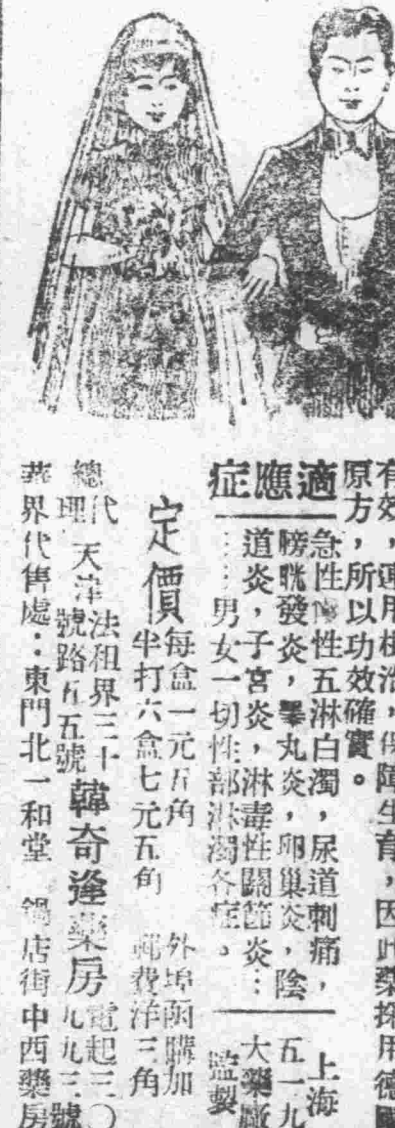 有效，連用根治，保障生育，因此藥採用德國
原方，所以功效確實。
適應症
急性慢性五淋白濁，尿道刺痛，
膀胱發炎，睪丸炎，卵巢炎，陰
道炎，子宮炎，淋毒性關節炎…
……男女一切性部淋濁各症。
上海
五一九
大藥廠
監製
定價
每盒一元五角
半打六盒七元五角
外埠函購加
郵費洋三角
總代理
天津法租界三十
號路五五號
韓奇逢藥房
電起三〇
九九三號
華界代售處：東門北一和堂　鍋店街中西藥房